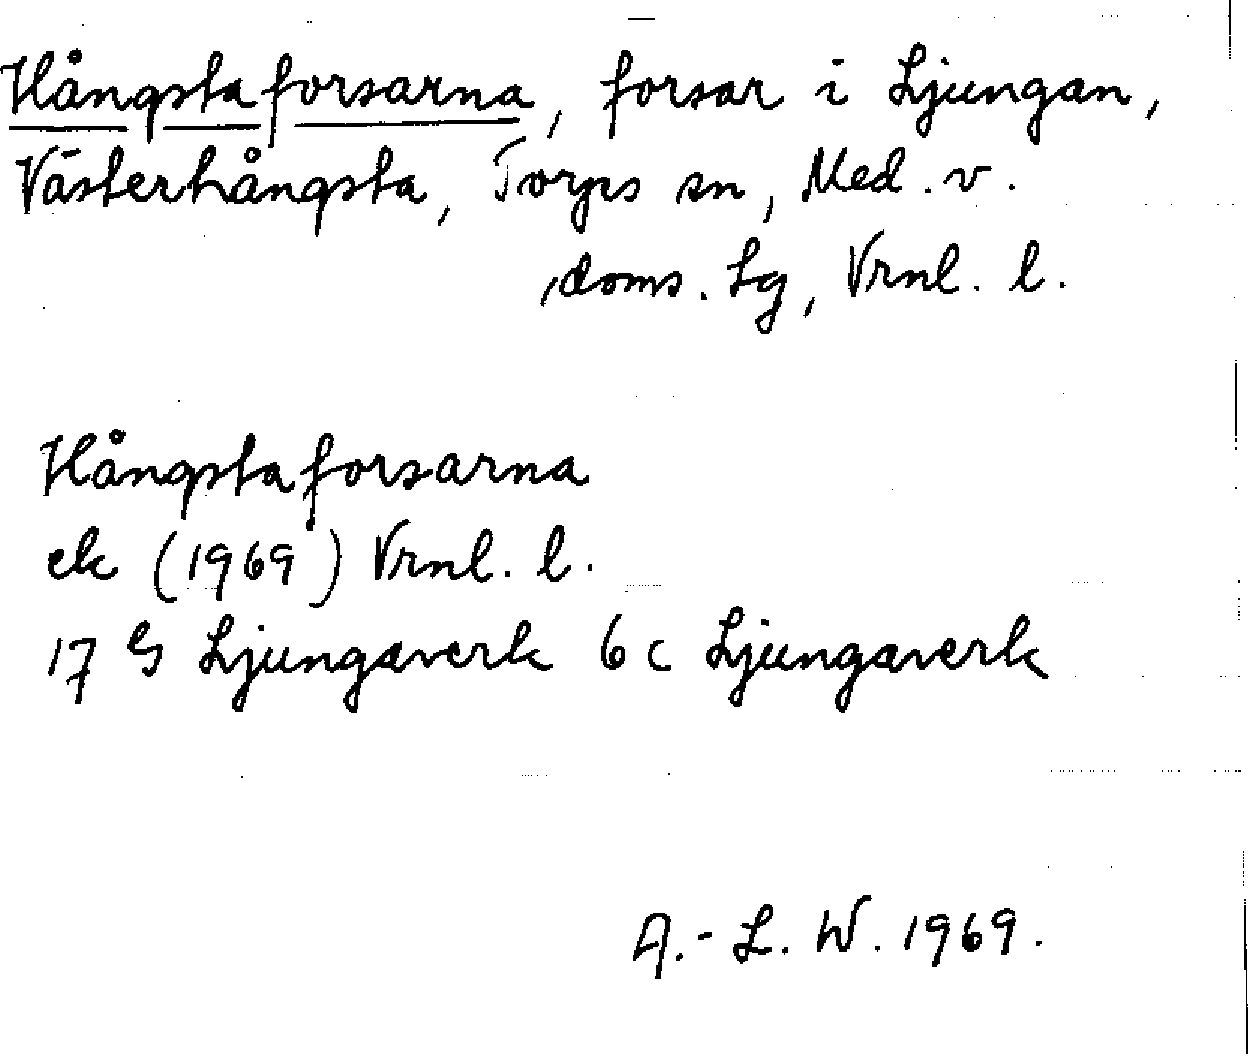 Hångstaforsarna, forsar i Ljungan,
Västerhångsta, Torps sn, Med. v.
doms. Lg, Vrnl. l.
Hångstaforsarna
ek (1969) Vrnl. l.
17 G Ljungaverk 6 c Ljungaverk
A.-L. W. 1969.